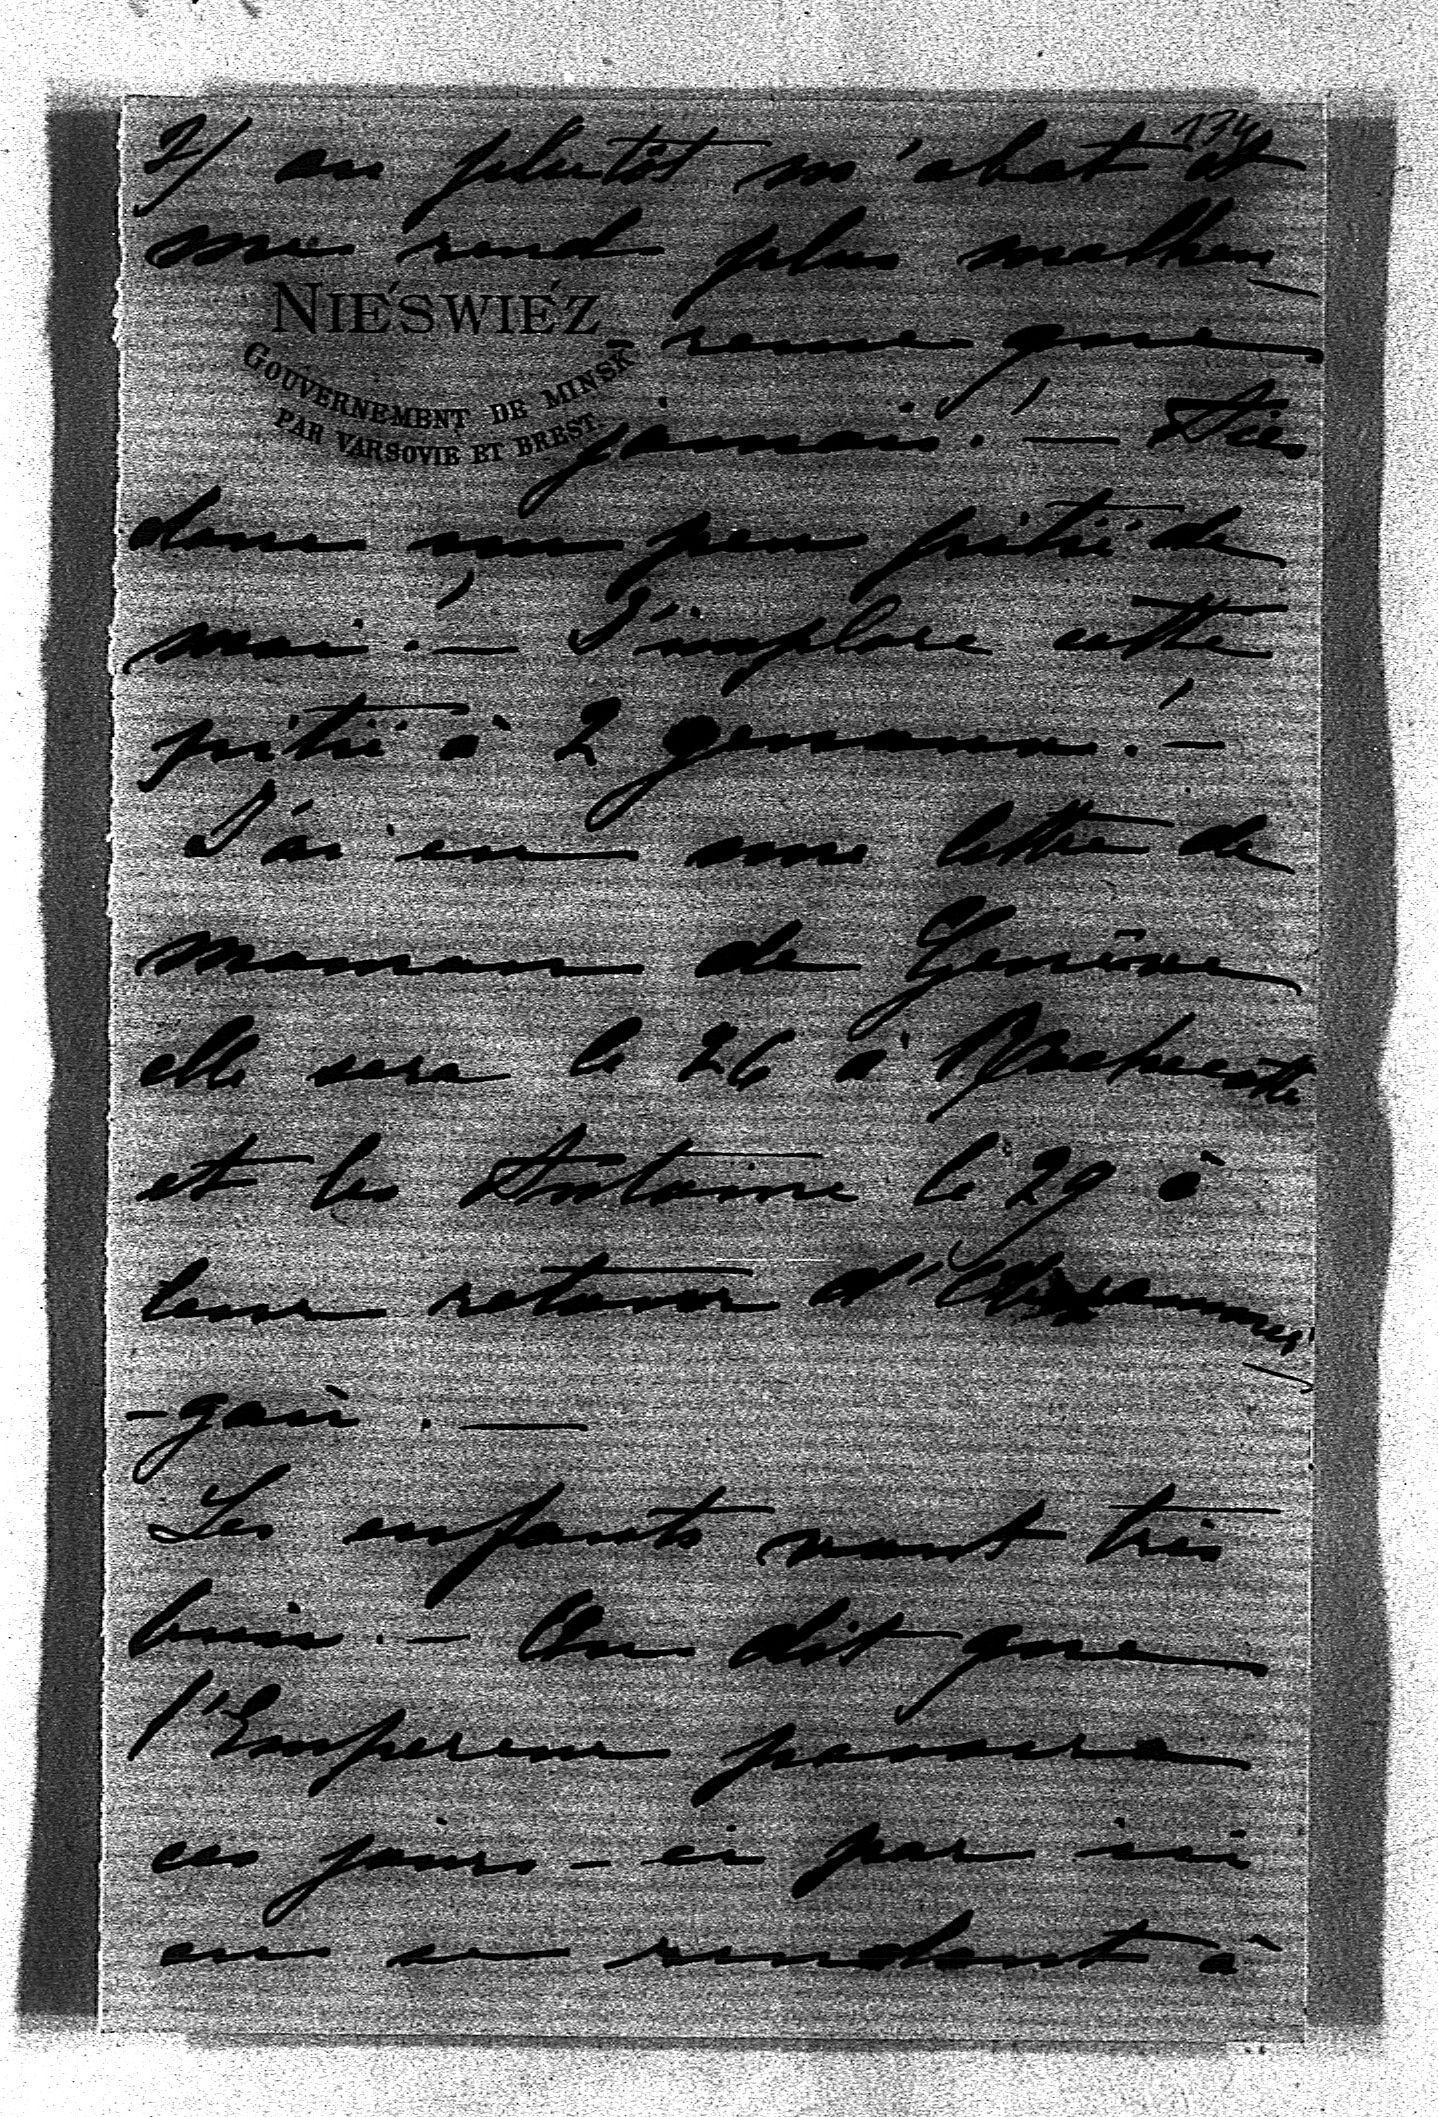 134
2/ ou plutôt m'abat et
me rend plus malheu
NIEŚWIEŻ
-reuse que
GOUVERNEMENT DE MINSK
PAR VARSOVIE ET BREST.
jamais! —
donc un peu pitié de
moi! — J'implore cette
pitié à 2 genoux! —
J'ai eu une lettre de
maman de Genève
elle sera le 26 à
et les Antoine le 29 à
leur retour
Les enfants vont très
bien. — On dit que
l'Empereur passera
ces jours-ci par ici
en se rendant à